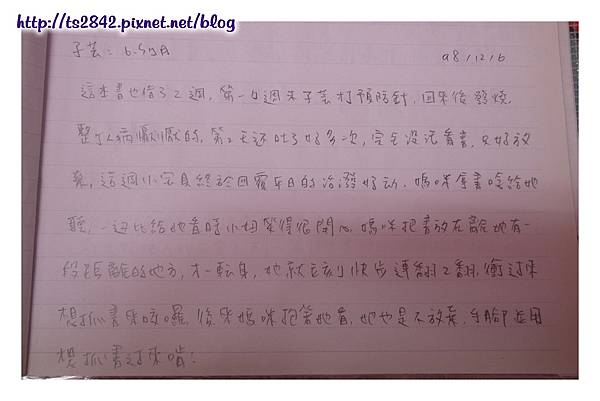 http://ts2842.pixnet.net/blog
子芸：6.5個月 98/12/6
這本書也借了2週，第一週末子芸打預防針，回來後發燒
整個人病懨懨的，第2天还吐了好多次，完全沒況看書，只好放
棄，這週小宝貝終於回覆平日的活潑好动．媽咪拿書唸給她
聽，一边比給她看時小妞覺得很開心，媽咪把書放在離她有一
段距離的地方，才一転身，她就立刻快步連翻2翻，衝过來
想抓書來咬囉．後來媽咪抱著她看，她也是不放棄，手腳並用
想抓書过來啃！